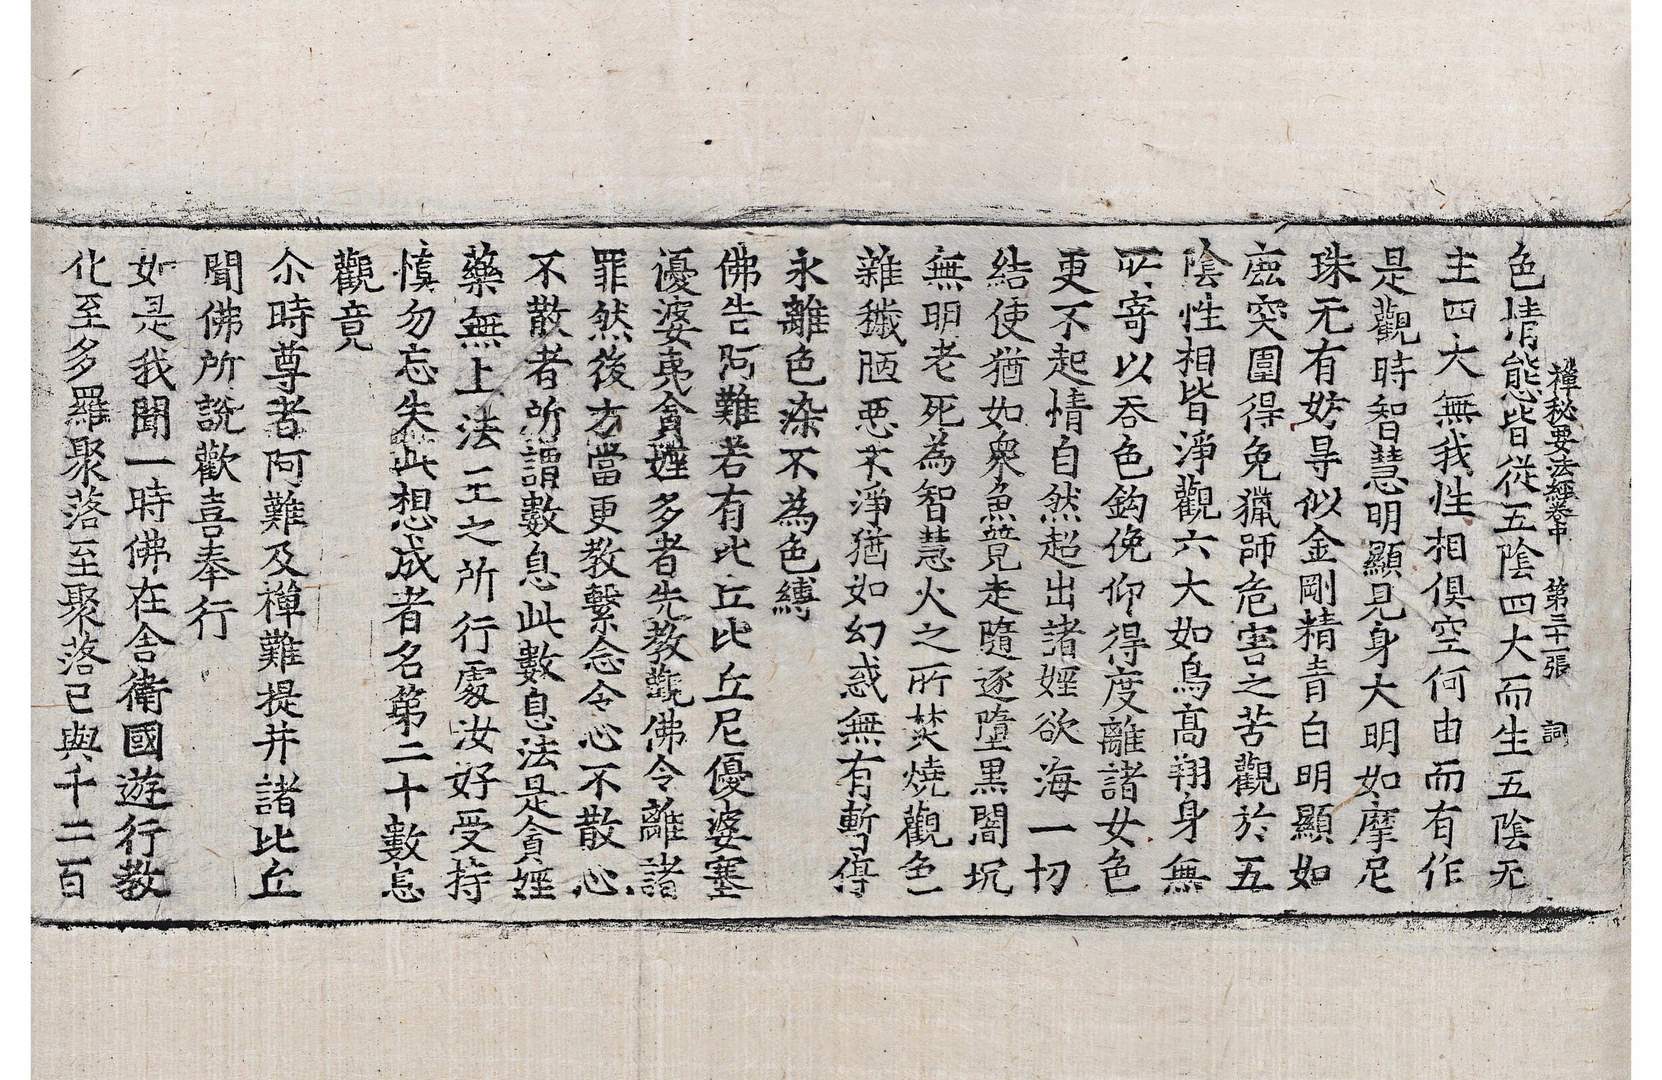 禪秘要法經卷中　第三十一張　詞
色情態皆從五陰四大而生五陰无
主四大無我性相俱空何由而有作
是觀時智慧明顯見身大明如摩尼
珠无有妨㝵似金剛精青白明顯如
鹿突圍得免獵師危害之苦觀於五
陰性相皆淨觀六大如鳥高翔身無
所寄以吞色鈎俛仰得度離諸女色
更不起情自然超出諸婬欲海一切
結使猶如衆魚競走隨逐墮黑闇坑
無明老死為智慧火之所焚燒觀色
雜穢陋惡不淨猶如幻惑無有暫停
永離色染不為色縛
佛告阿難若有比丘比丘尼優婆塞
優婆夷貪婬多者先教觀佛令離諸
罪然後方當更教繫念令心不散心
不散者所謂數息此數息法是貪婬
藥無上法王之所行處汝好受持
慎勿忘失此想成者名第二十數息
觀竟
尒時尊者阿難及禪難提并諸比丘
聞佛所說歡喜奉行
如是我聞一時佛在舍衛國遊行教
化至多羅聚落至聚落已與千二百